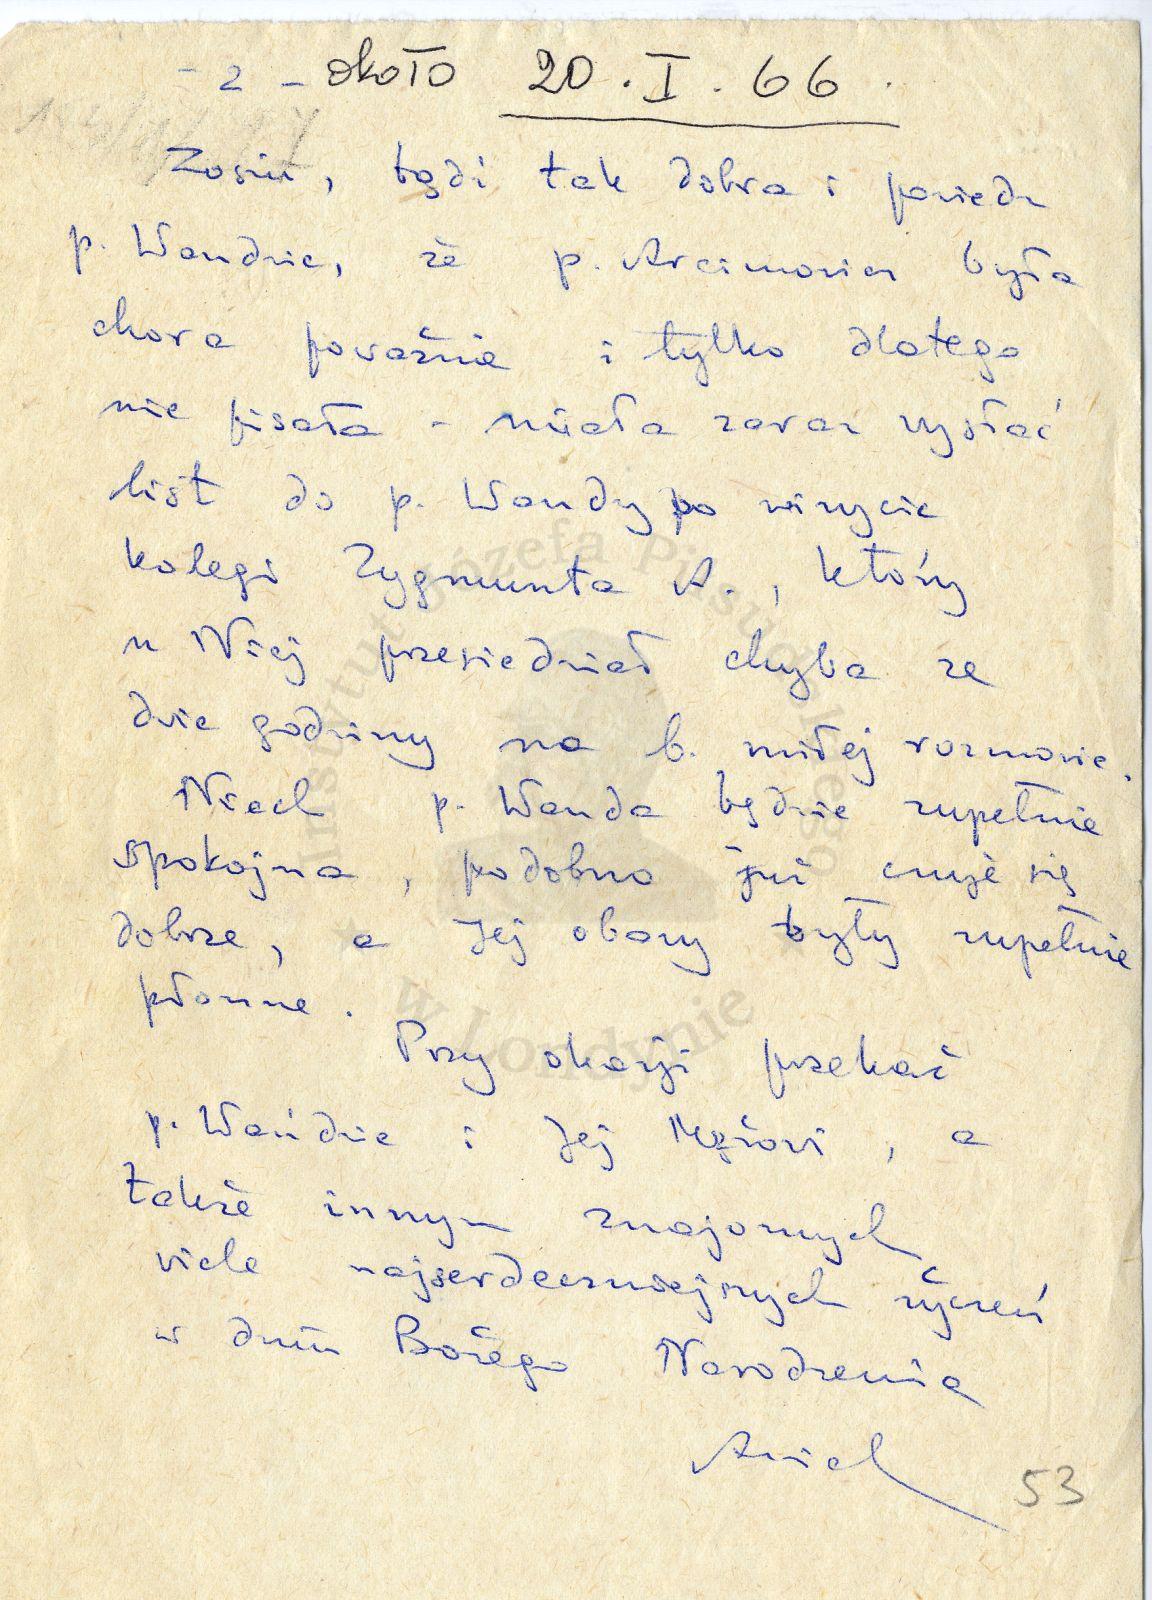 - 2 - około 20.I.66.
Zosiu, bądź tak dobra i powiedz
p. Wandzie, że p. Arcimowicz była
chora poważnie i tylko dlatego
nie pisała - miała zaraz wysłać
list do p. Wandy po wizycie
kolegi Zygmunta A., który
u Niej przesiedział chyba ze
dwie godziny na b. miłej rozmowie.
Niech p. Wanda będzie zupełnie
spokojna, podobno już czuje się
dobrze, a Jej obawy były zupełnie
płonne.
Przy okazji przekaż
p. Wandzie i Jej Mężowi, a
także innym znajomych
wiele najserdeczniejszych życzeń
w dniu Bożego Narodzenia
53
Instytut Józefa Piłsudskiego
w Londynie